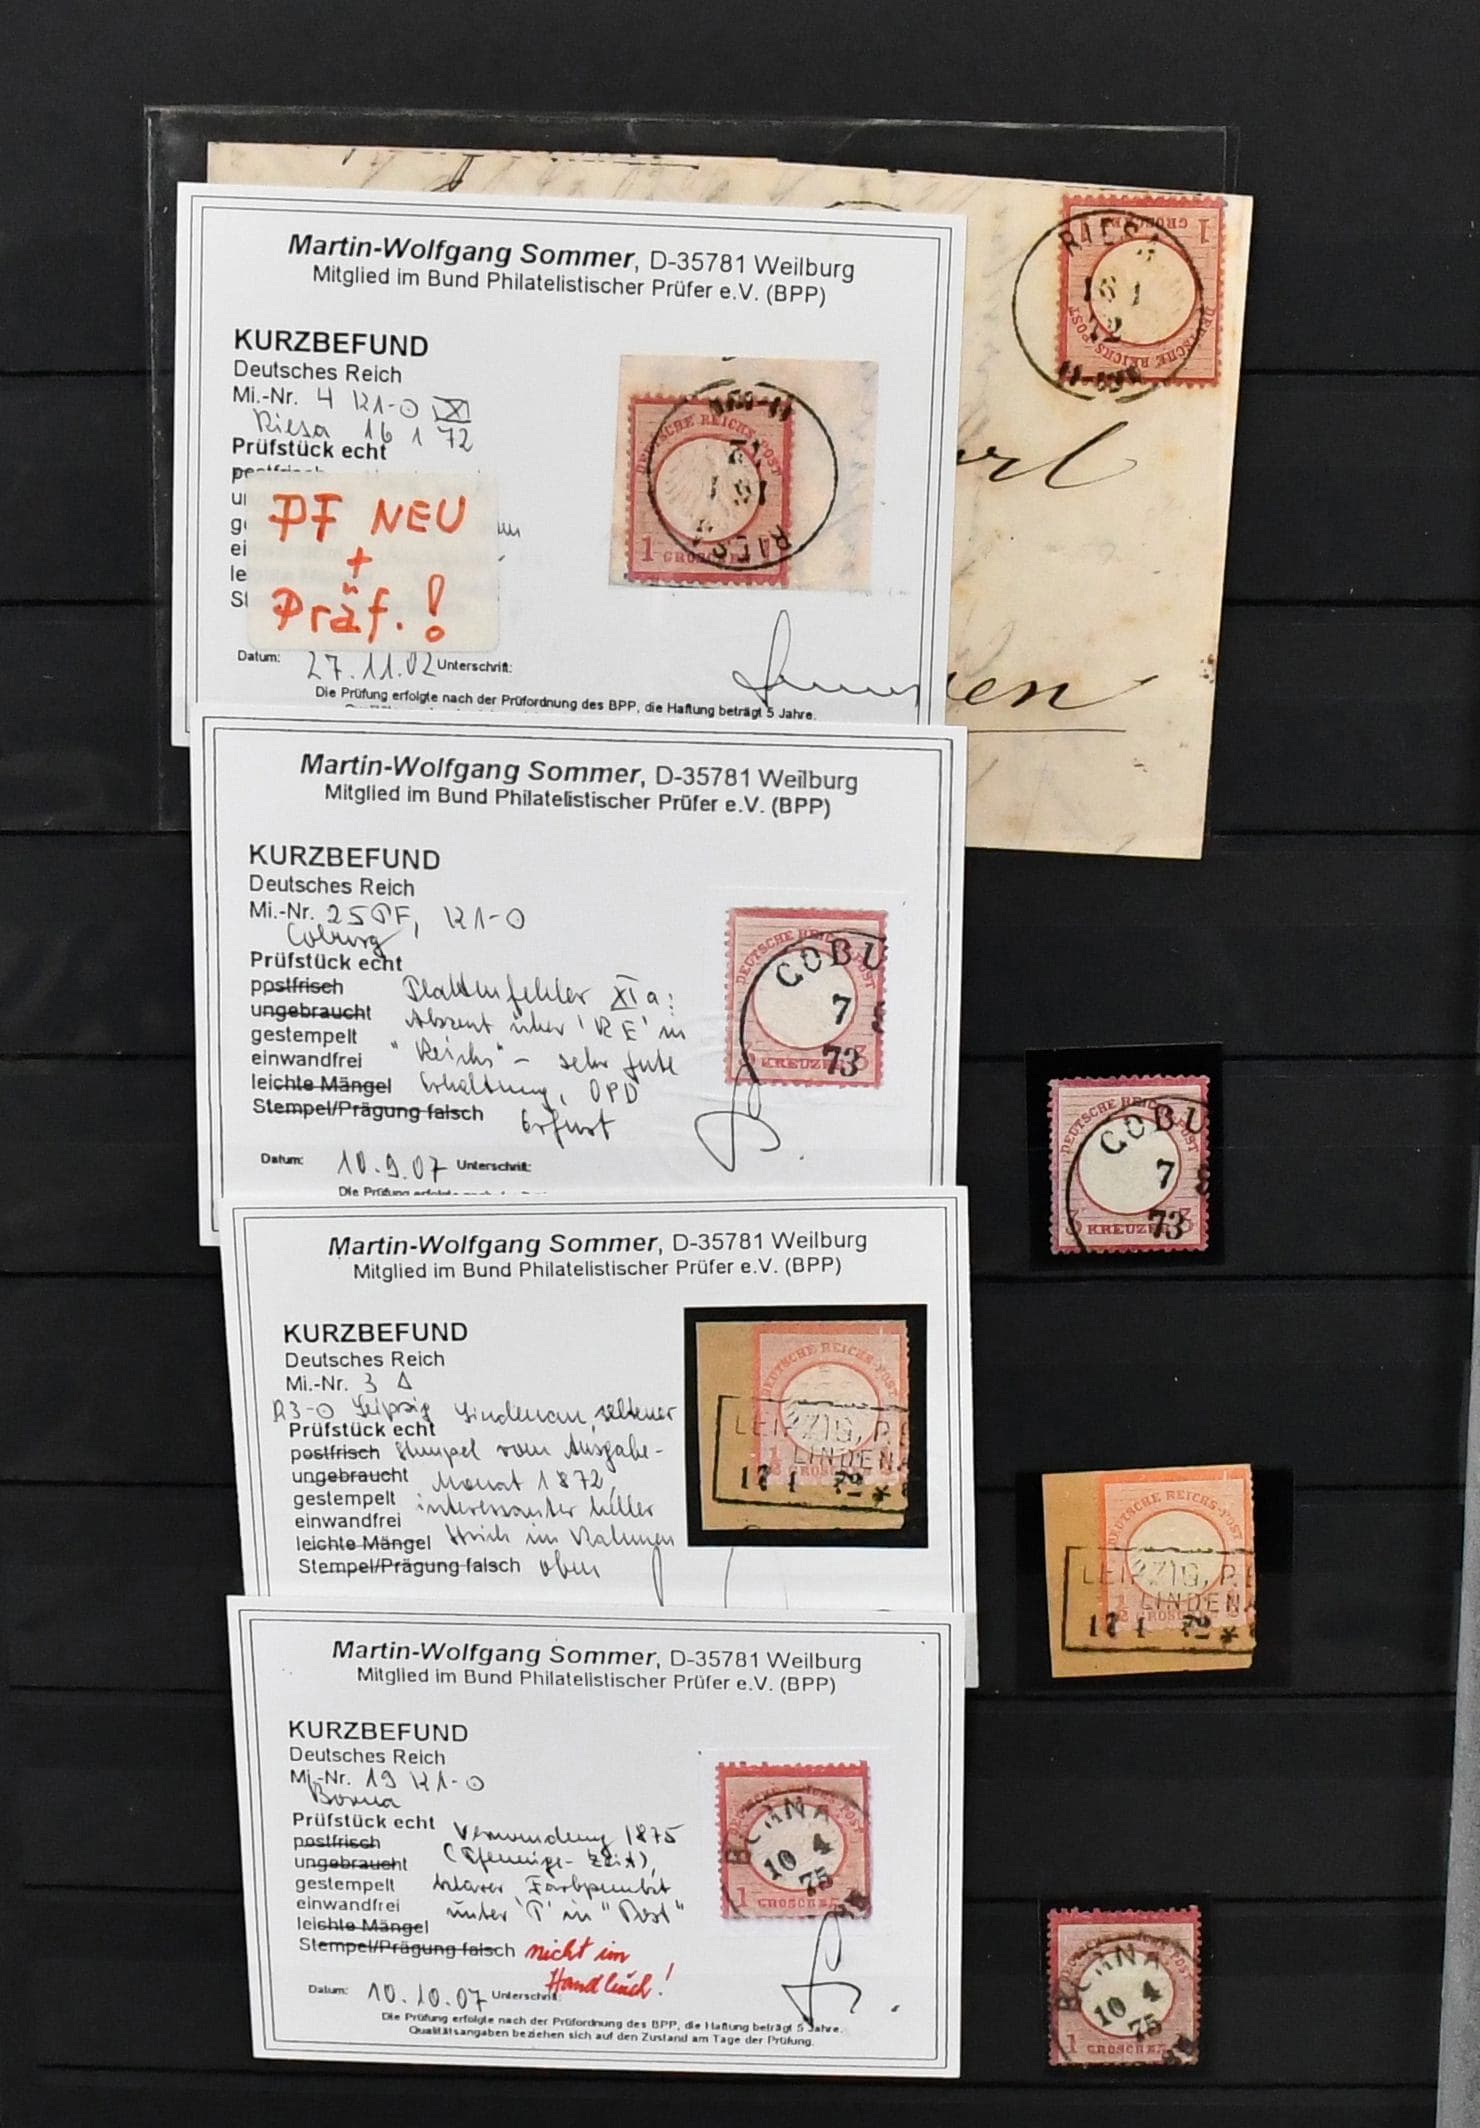 Martin-Wolfgang Sommer, D-35781 Weilburg
Mitglied im Bund Philatelistischer Prüfer e.V. (BPP)
KURZBEFUND
Deutsches Reich
Mi.-Nr. 4 K1-O
Riesa 16 1 72
Prüfstück echt
PF NEU
+
Präf.!
Datum: 27.11.02 Unterschrift:
Die Prüfung erfolgte nach der Prüfordnung des BPP, die Haftung beträgt 5 Jahre.
DEUTSCHE REICHS-POST
1 GROSCHEN
RIESA
16 1
72
DEUTSCHE REICHS-POST
1 GROSCHEN
RIESA
16 1
72
Martin-Wolfgang Sommer, D-35781 Weilburg
Mitglied im Bund Philatelistischer Prüfer e.V. (BPP)
KURZBEFUND
Deutsches Reich
Mi.-Nr. 25 PF, K1-O
Coburg
Prüfstück echt
postfrisch Plattenfehler XIa:
ungebraucht Akzent über 'RE' in
gestempelt "Reichs" - sehr gute
einwandfrei Erhaltung, OPD
leichte Mängel Erfurt
Stempel/Prägung falsch
Datum: 10.9.07 Unterschrift:
Die Prüfung erfolgte nach
DEUTSCHE REICHS-POST
COBU
7
73
3 KREUZER 3
DEUTSCHE REICHS-POST
COBU
7
73
3 KREUZER 3
Martin-Wolfgang Sommer, D-35781 Weilburg
Mitglied im Bund Philatelistischer Prüfer e.V. (BPP)
KURZBEFUND
Deutsches Reich
Mi.-Nr. 3 Δ
R3-O Leipzig Lindenau, seltener
Prüfstück echt
postfrisch Stempel vom Ausgabe-
ungebraucht Monat 1872,
gestempelt interessanter heller
einwandfrei
leichte Mängel Strich im Rahmen
Stempel/Prägung falsch oben
DEUTSCHE REICHS-POST
LEIPZIG, P.E
LINDENA
17 1 72 *
½ GROSCHEN
DEUTSCHE REICHS-POST
LEIPZIG, P.E
LINDENA
17 1 72 *
½ GROSCHEN
Martin-Wolfgang Sommer, D-35781 Weilburg
Mitglied im Bund Philatelistischer Prüfer e.V. (BPP)
KURZBEFUND
Deutsches Reich
Mi.-Nr. 19 K1-O
Borna
Prüfstück echt Verwendung 1875
postfrisch (Pfennige-Zeit),
ungebraucht
gestempelt klarer Farbpunkt
einwandfrei unter 'P' in "Post"
leichte Mängel
Stempel/Prägung falsch nicht im
Handbuch!
Datum: 10.10.07 Unterschrift:
Die Prüfung erfolgte nach der Prüfordnung des BPP, die Haftung beträgt 5 Jahre.
Qualitätsangaben beziehen sich auf den Zustand am Tage der Prüfung.
BORNA
10 4
75
1 GROSCHEN
BORNA
10 4
75
1 GROSCHEN